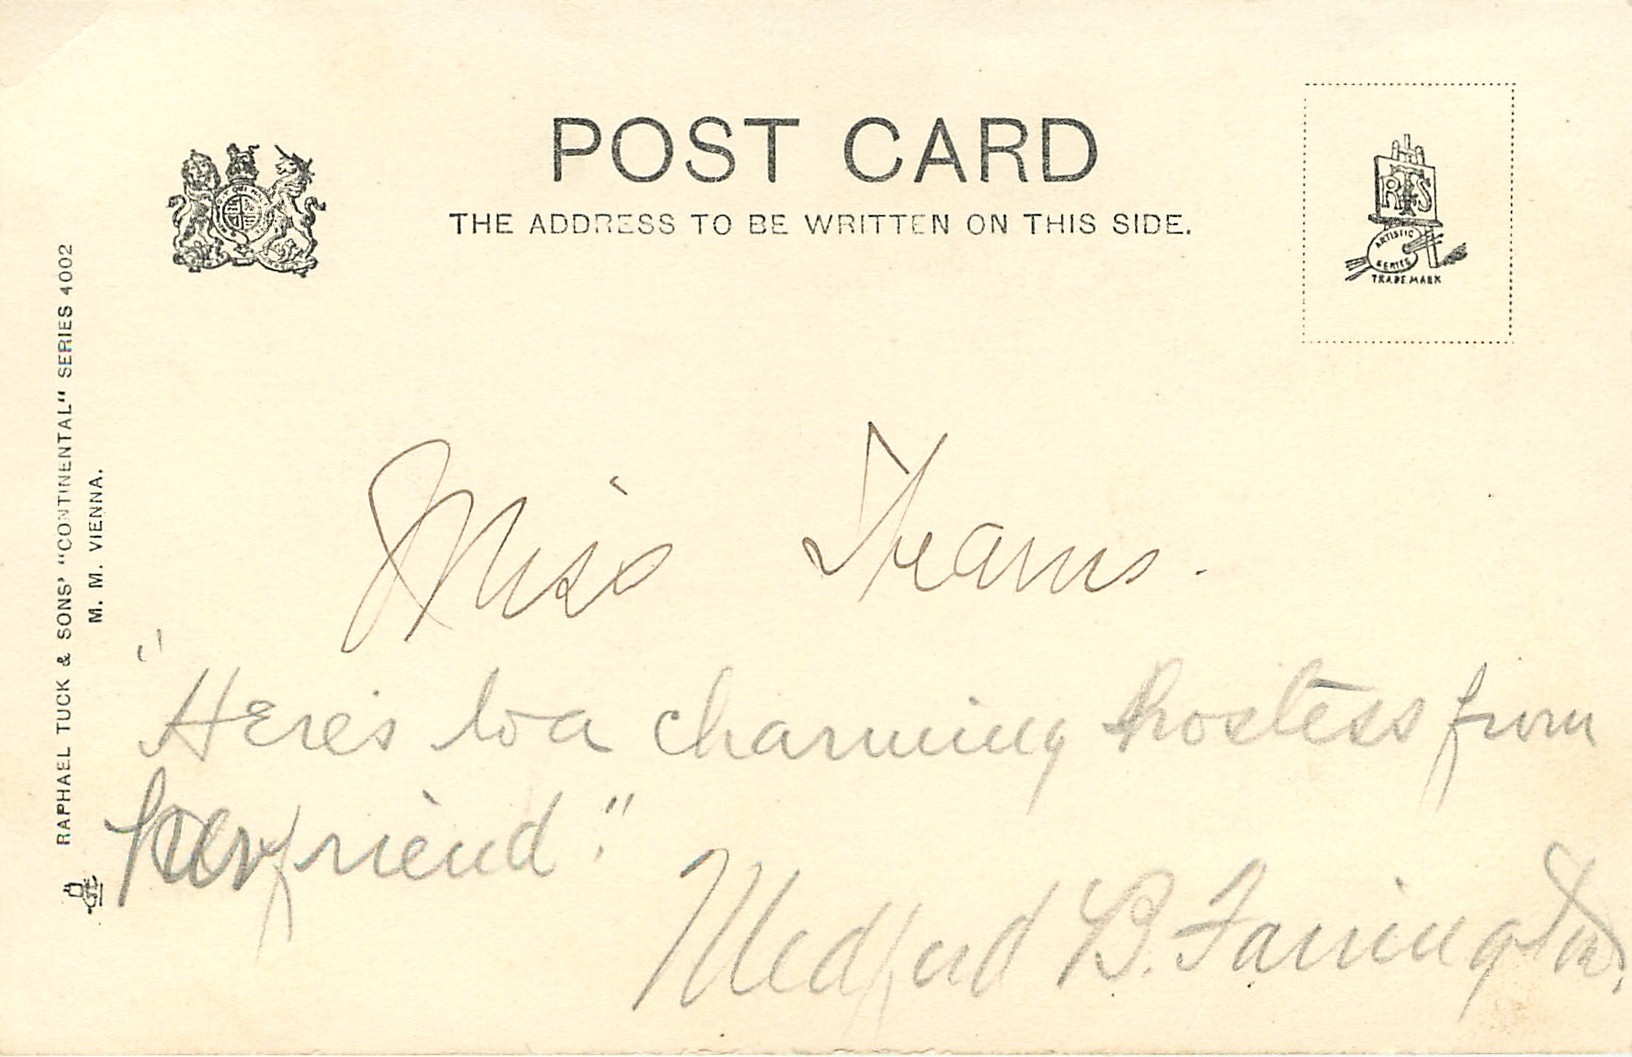 POST CARD
THE ADDRESS TO BE WRITTEN ON THIS SIDE.
RTS
ARTISTIC
SERIES
TRADE MARK
RAPHAEL TUCK & SONS' "CONTINENTAL" SERIES 4002
M. M. VIENNA.
Miss
"Here's to a charming hostess from
her friend."
Medford B. Farrington.